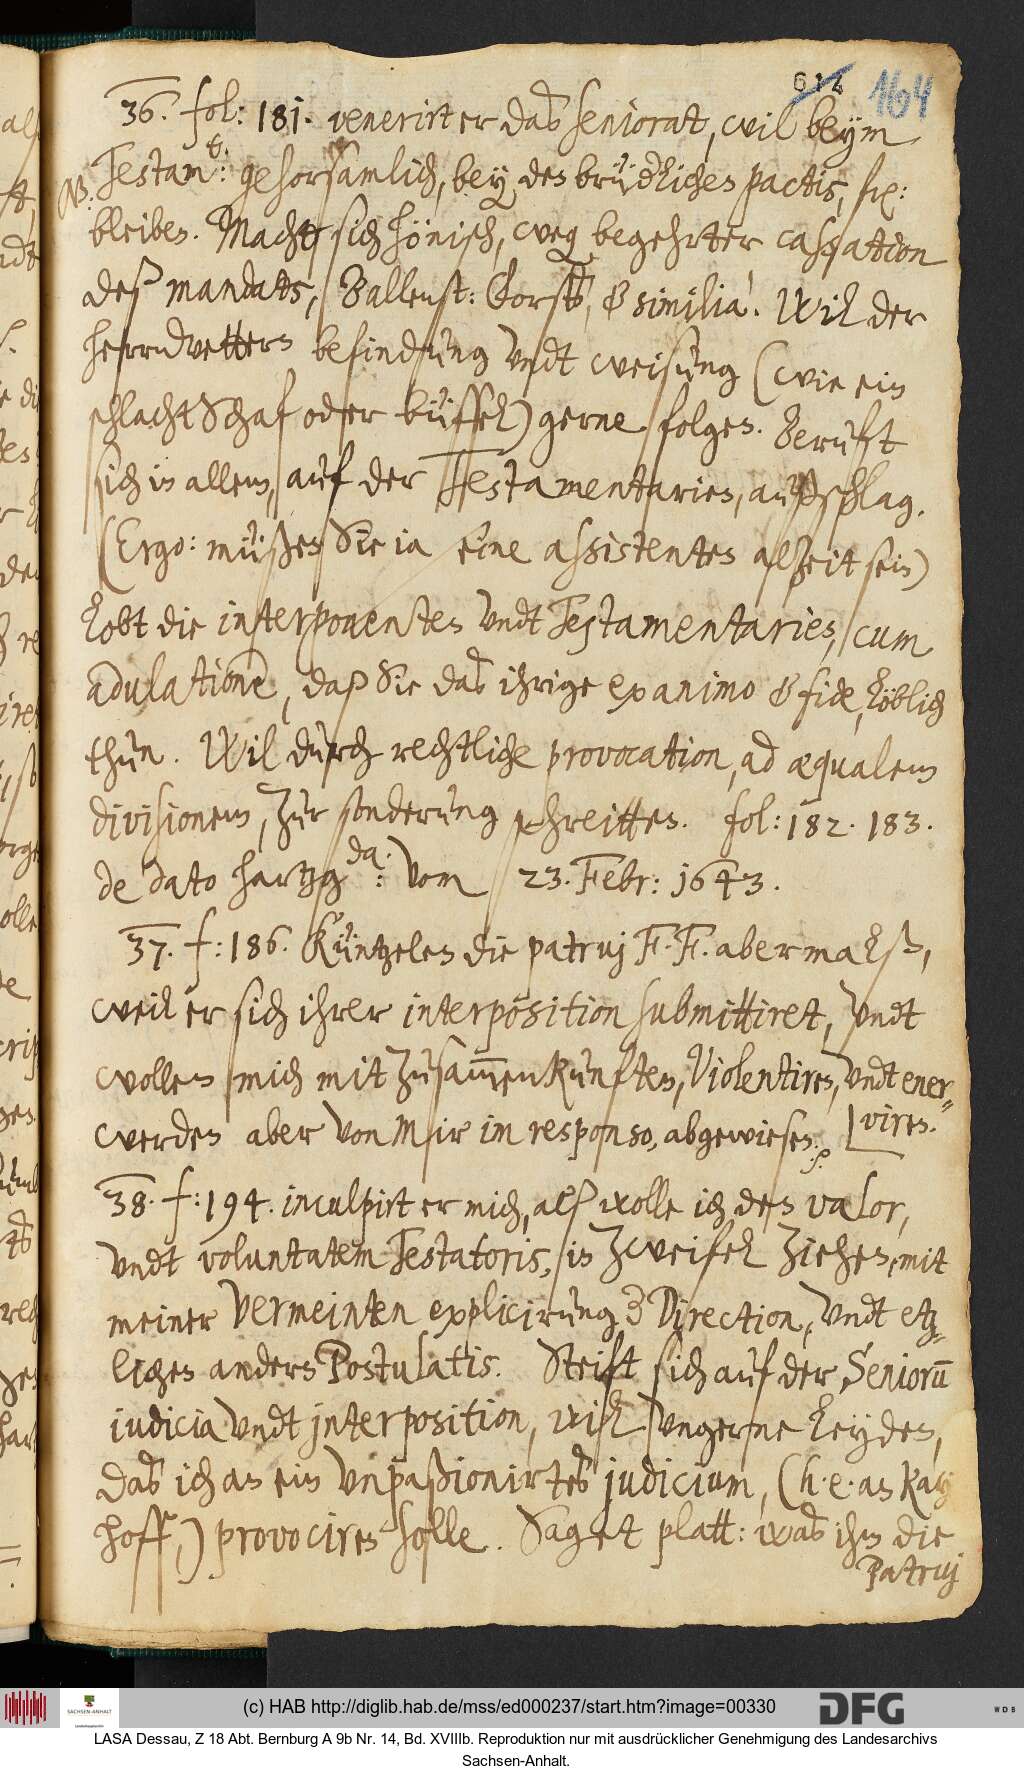 614 164
36. fol: 181. venerirt er das Seniorat, wil beym
NB. Testam:t gehorsamlich, bey den brüdlichen pactis, fe:
bleiben. Macht sich hönisch, weg begehrter cassation
deß mandats, Ballenst: Vorst, & similia. Wil der
herrn vettern befindung vndt weisung (wie ein
schlachtSchaf oder büffel) gerne folgen. Beruft
sich in allem, auf der Testamentarien, außschlag.
(Ergo: müßen Sie ja seine assistenten alzeit sein)
Lobt die interponenten vndt Testamentarien, cum
adulatione, daß Sie das ihrige ex animo & fide, löblich
thun. Wil durch rechtliche provocation, ad æqualem
divisionem, zur sonderung schreitten. fol: 182. 183.
de dato hartzg:da: vom 23. Febr: 1643.
37. f: 186. Küntzelen die patruj F. F. abermalß,
weil er sich ihrer interposition submittiret, vndt
wollen mich mit Zusammenkunften, violentiren, vndt ener-
werden aber von Mir im responso, abgewiesen. viren.
38. f: 194. inculpirt er mich, alß wolle ich den valor,
vndt voluntatem Testatoris, in Zweifel ziehen, mit
meiner vermeinten explicirung 3 Direction, vndt etz-
lichen andern Postulatis. Steift sich auf der Seniorum
judicia vndt interposition, wil vngerne leyden,
das ich an ein vnpaßionirtes judicium, (h. e. an Kay
hoff,) provociren solle. Saget platt: was ihm die
Patruj
(c) HAB http://diglib.hab.de/mss/ed000237/start.htm?image=00330
SACHSEN-ANHALT
DFG
WDB
LASA Dessau, Z 18 Abt. Bernburg A 9b Nr. 14, Bd. XVIIIb. Reproduktion nur mit ausdrücklicher Genehmigung des Landesarchivs
Sachsen-Anhalt.